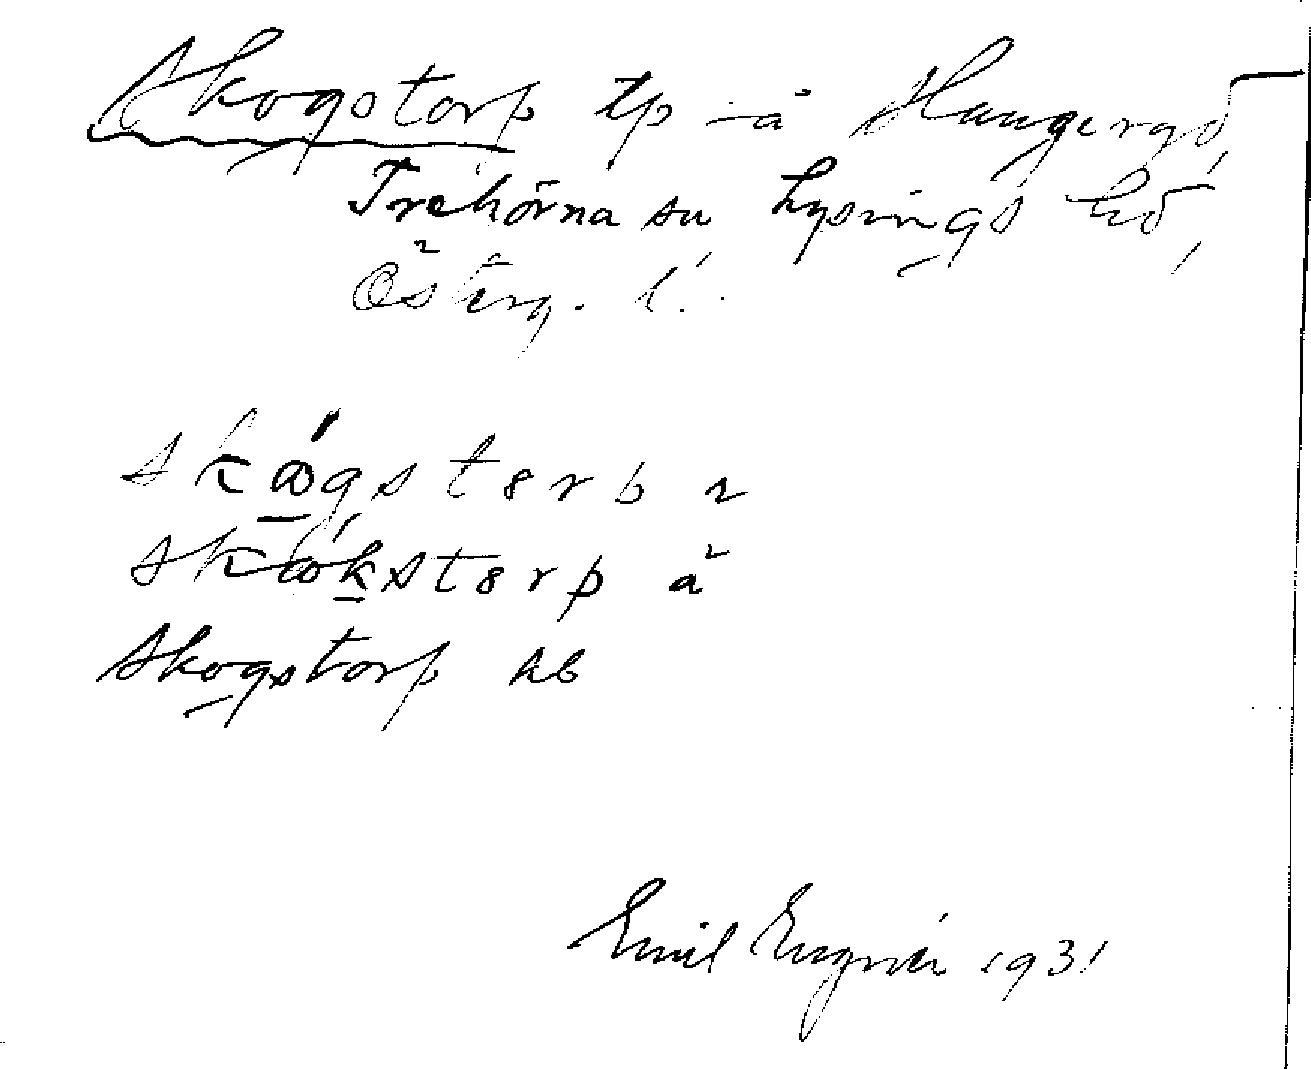 Skogstorp tp å Haugergd,
Trehörna sn Lysings hd,
Österg. l.
skógstərb
skókstərp
Skogstorp hb
Emil 1931